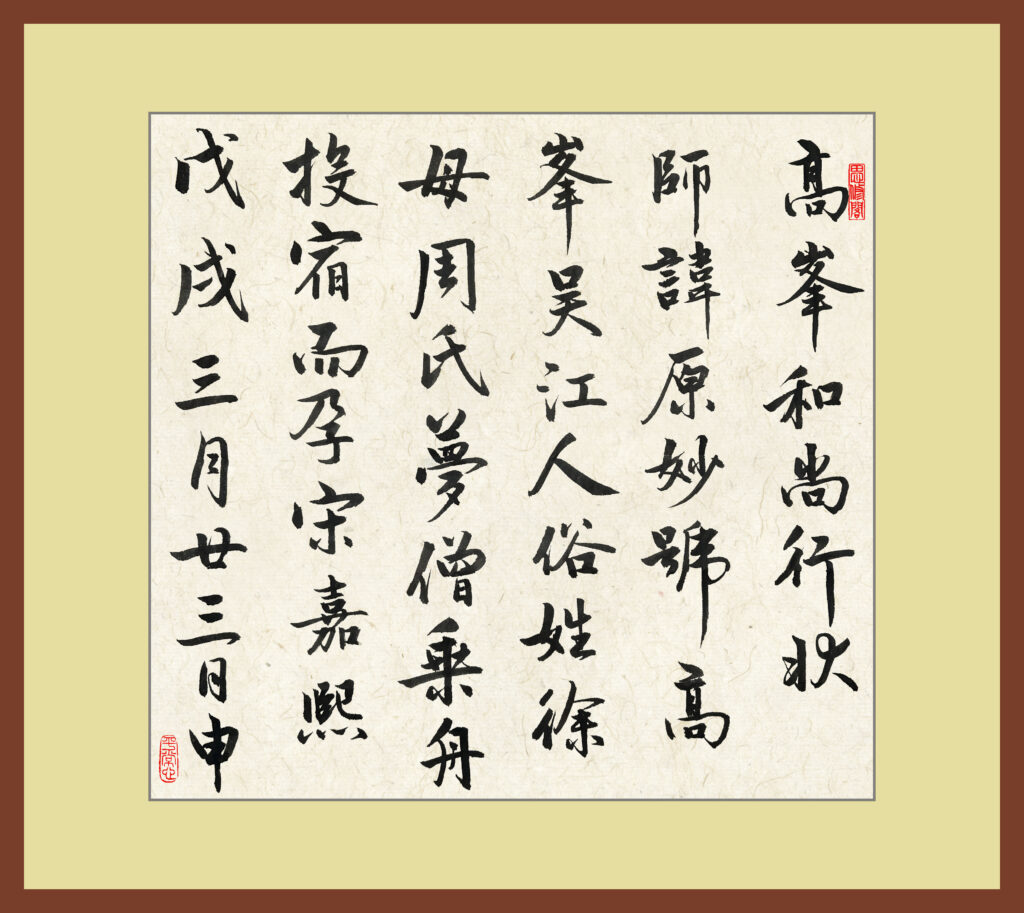 思修閣
高峯和尚行狀
師諱原妙號高
峯吴江人俗姓徐
母周氏夢僧乘舟
投宿而孕宋嘉熙
戊戌三月廿三日申
平常心